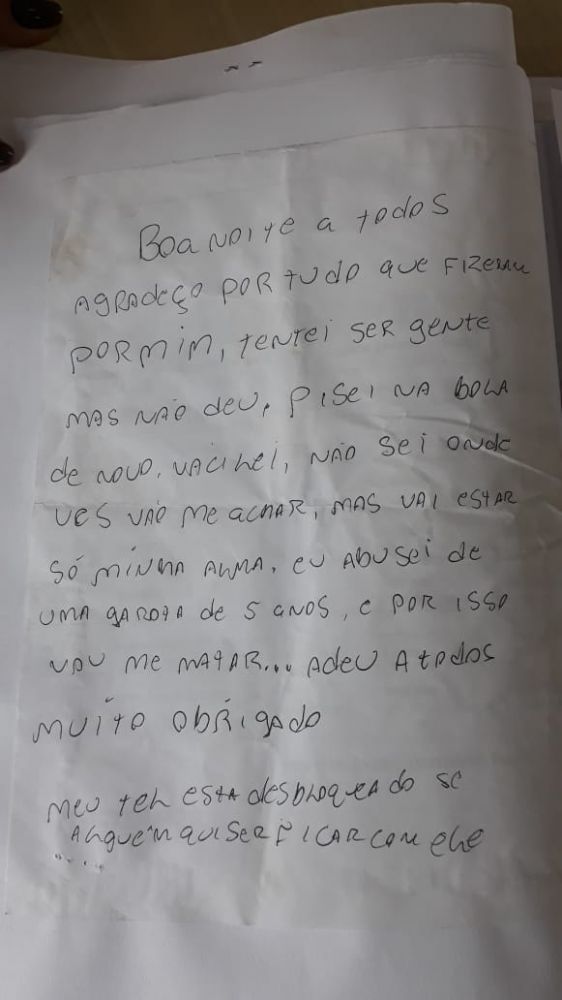 BOA NOITE A TODOS
AGRADEÇO POR TUDO QUE FIZERAM
POR MIM, TENTEI SER GENTE
MAS NÃO DEU, PISEI NA BOLA
DE NOVO. VACILEI, NÃO SEI ONDE
VCS VÃO ME ACHAR, MAS VAI ESTAR
SÓ MINHA ALMA. EU ABUSEI DE
UMA GAROTA DE 5 ANOS, E POR ISSO
VOU ME MATAR... ADEU A TODOS
MUITO OBRIGADO
MEU TEL ESTA DESBLOQUEADO SE
ALGUÉM QUISER FICAR COM ELE
.....